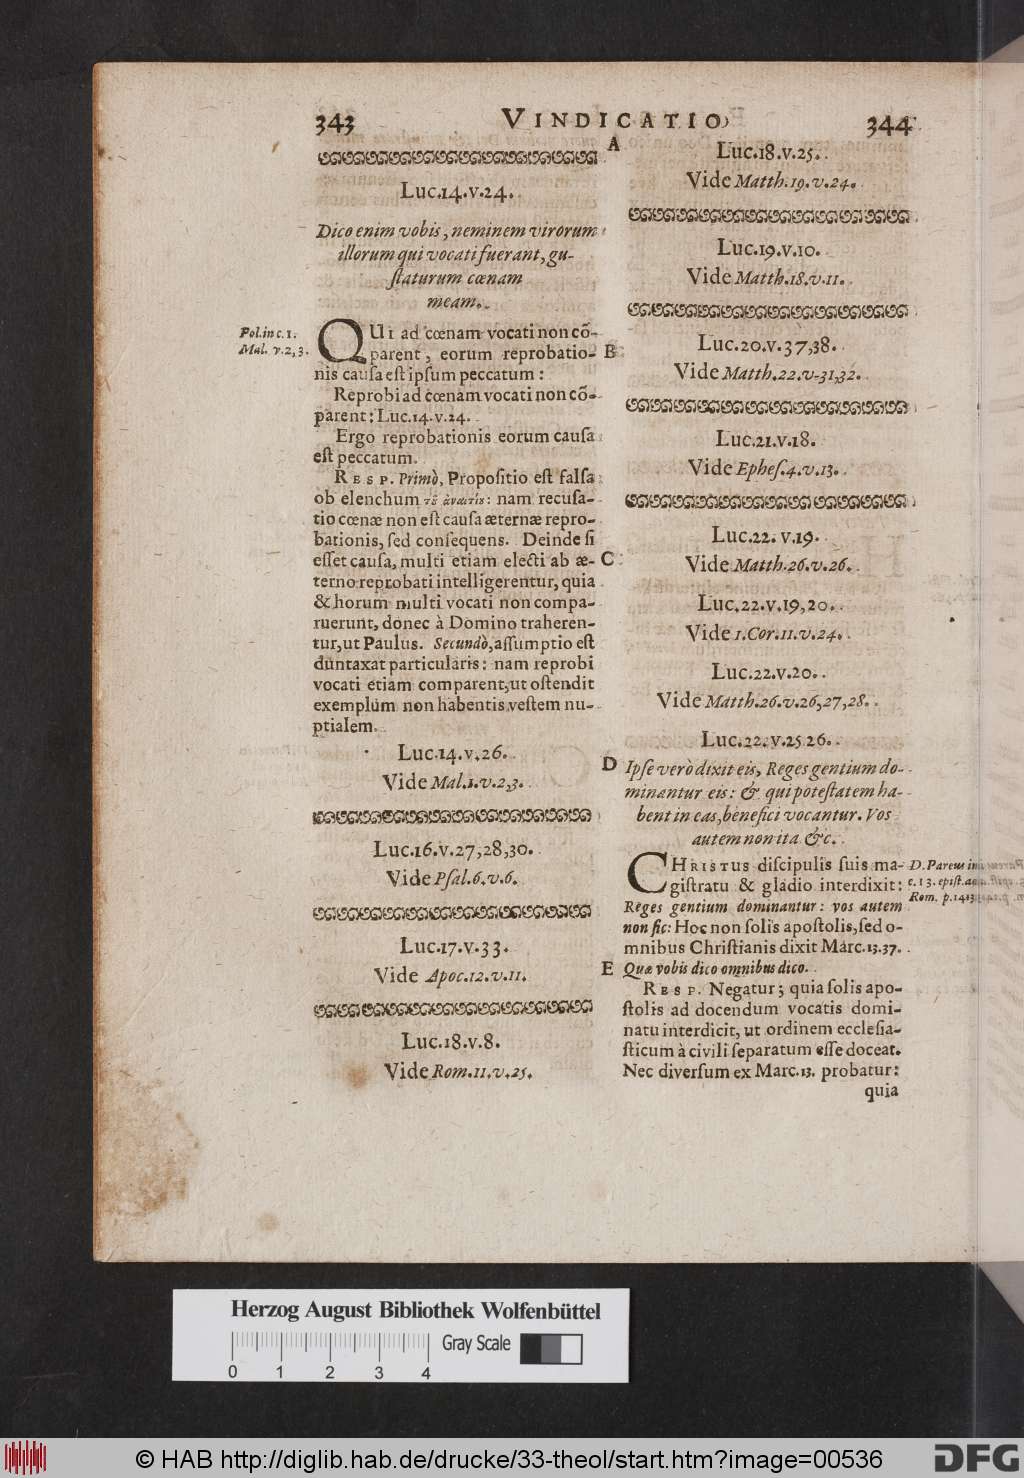 343 VINDICATIO 344
Luc.14.v.24.
Dico enim vobis, neminem virorum
illorum qui vocati fuerant, gu-
ſtaturum cœnam
meam.
Pol.in c.1.
Mal. v.2,3.
QUI ad cœnam vocati non cõ-
parent, eorum reprobatio-
nis cauſa eſt ipſum peccatum:
Reprobi ad cœnam vocati non cõ-
parent: Luc.14.v.24.
Ergo reprobationis eorum cauſa
eſt peccatum.
RESP. Primò, Propoſitio eſt falſa
ob elenchum τῦ ἀναιτίε: nam recuſa-
tio cœnæ non eſt cauſa æternæ repro-
bationis, ſed conſequens. Deinde ſi
eſſet cauſa, multi etiam electi ab æ-
terno reprobati intelligerentur, quia
& horum multi vocati non compa-
ruerunt, donec à Domino traheren-
tur, ut Paulus. Secundò, aſſumptio eſt
duntaxat particularis: nam reprobi
vocati etiam comparent, ut oſtendit
exemplum non habentis veſtem nu-
ptialem.
Luc.14.v.26.
Vide Mal.1.v.2,3.
Luc.16.v.27,28,30.
Vide Pſal.6.v.6.
Luc.17.v.33.
Vide Apoc.12.v.11.
Luc.18.v.8.
Vide Rom.11.v.25.
A
B
C
D
E
Luc.18.v.25.
Vide Matth.19.v.24.
Luc.19.v.10.
Vide Matth.18.v.11.
Luc.20.v.37,38.
Vide Matth.22.v.31,32.
Luc.21.v.18.
Vide Epheſ.4.v.13.
Luc.22.v.19.
Vide Matth.26.v.26.
Luc.22.v.19,20.
Vide 1.Cor.11.v.24.
Luc.22.v.20.
Vide Matth.26.v.26,27,28.
Luc.22.v.25 26.
Ipſe verò dixit eis, Reges gentium do-
minantur eis: & qui poteſtatem ha-
bent in eas, benefici vocantur. Vos
autem non ita &c.
CHRISTUS diſcipulis ſuis ma-
giſtratu & gladio interdixit:
Reges gentium dominantur: vos autem
non ſic: Hoc non ſolis apoſtolis, ſed o-
mnibus Chriſtianis dixit Marc.13.37.
Quæ vobis dico omnibus dico.
RESP. Negatur; quia ſolis apo-
ſtolis ad docendum vocatis domi-
natu interdicit, ut ordinem eccleſia-
ſticum à civili ſeparatum eſſe doceat.
Nec diverſum ex Marc.13. probatur:
quia
D. Pareus in
c.13.epiſt.ad
Rom. p.1413
Herzog August Bibliothek Wolfenbüttel
Gray Scale
0 1 2 3 4
© HAB http://diglib.hab.de/drucke/33-theol/start.htm?image=00536
DFG